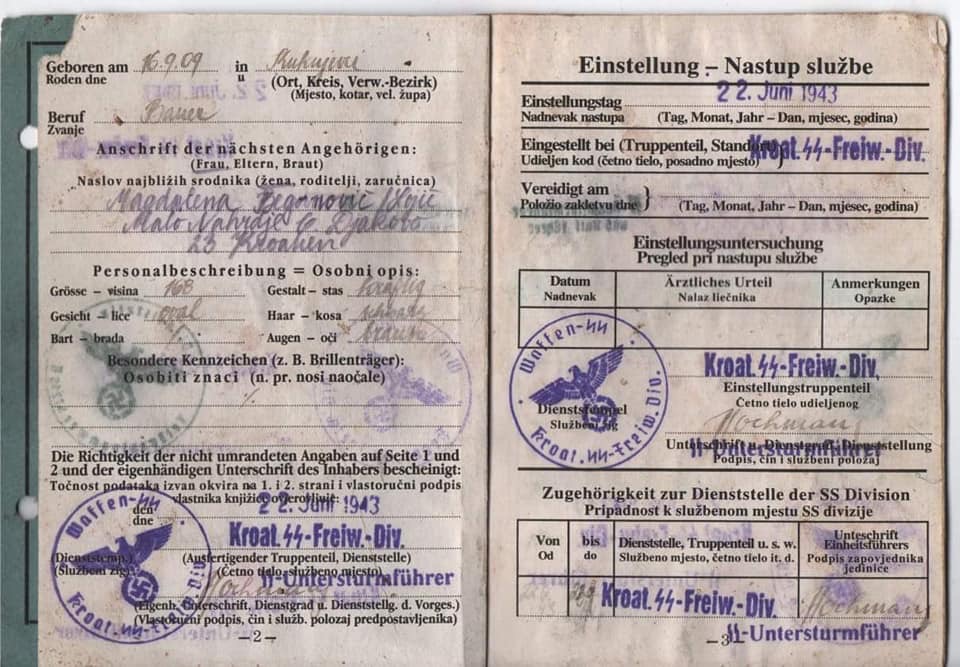 Geboren am 16.9.09 in
Roden dne u (Ort, Kreis, Verw.-Bezirk)
(Mjesto, kotar, vel. župa)
Beruf Bauer
Zvanje
Anschrift der nächsten Angehörigen:
(Frau, Eltern, Braut)
Naslov najbližih srodnika (žena, roditelji, zaručnica)
Magdalena
23 Kroatien
Personalbeschreibung = Osobni opis:
Grösse – visina 168 Gestalt – stas kräftig
Gesicht – lice oval Haar – kosa schwarz
Bart – brada Augen – oči braun
Besondere Kennzeichen (z. B. Brillenträger):
Osobiti znaci (n. pr. nosi naočale)
Die Richtigkeit der nicht umrandeten Angaben auf Seite 1 und
2 und der eigenhändigen Unterschrift des Inhabers bescheinigt:
Točnost podataka izvan okvira na 1. i 2. strani i vlastoručni potpis
vlastnika knjižice ovjerovljuje:
den 22. Juni 1943
dne
Waffen-SS
Kroat. SS-Freiw. Div.
Kroat. SS-Freiw.-Div.
(Dienststemp.) (Ausfertigender Truppenteil, Dienststelle)
(Službeni žig) (Četno tielo službeno mjesto)
SS-Untersturmführer
(Eigenh. Unterschrift, Dienstgrad u. Dienststellg. d. Vorges.)
(Vlastoručni potpis, čin i služb. polozaj predpostavljenika)
– 2 –
Einstellung – Nastup službe
Einstellungstag 22. Juni 1943
Nadnevak nastupa (Tag, Monat, Jahr – Dan, mjesec, godina)
Eingestellt bei (Truppenteil, Standort)
Udieljen kod (četno tielo, posadno mjesto) Kroat. SS-Freiw.-Div.
Vereidigt am
Položio zakletvu dne } (Tag, Monat, Jahr – Dan, mjesec, godina)
Einstellungsuntersuchung
Pregled pri nastupu službe
Datum Ärztliches Urteil Anmerkungen
Nadnevak Nalaz liečnika Opazke
Waffen-SS
Kroat. SS-Freiw. Div.
Kroat. SS-Freiw.-Div.
Einstellungstruppenteil
Dienststempel Četno tielo udieljenog
Službeni žig
Unterschrift u. Dienstgrad, Dienststellung
SS-Untersturmführer
Podpis, čin i službeni položaj
Zugehörigkeit zur Dienststelle der SS Division
Pripadnost k službenom mjestu SS divizije
Von bis Dienststelle, Truppenteil u. s. w. Unteschrift
Od do Službeno mjesto, četno tielo it. d. Einheitsführers
Podpis zapovjednika
jedinice
Kroat. SS-Freiw.-Div.
SS-Untersturmführer
– 3 –